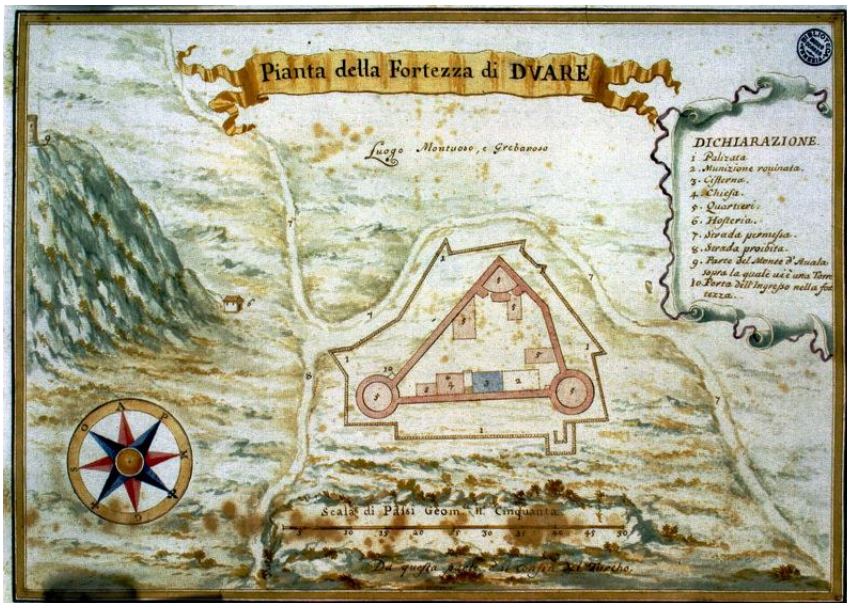 Pianta della Fortezza di DVARE
Luogo Montuoso, e Grebanoso
DICHIARAZIONE.
1. Palizata
2. Munizione rouinata.
3. Cisterna.
4. Chiesa.
5. Quartieri.
6. Hosteria.
7. Strada permessa
8. Strada proibita.
9. Parte del Monte d'Auala
sopra la quale ui è una Torre
10. Porta dell'Ingresso nella for
tezza.
9
7
7
7
7
6
8
1
1
1
1
10
5
5
5
5
5
5
5
4
3
2
Scala di Passi Geom. n. Cinquanta
5 10 15 20 25 30 35 40 45 50
Da questa parte è il Confin del Turcho.